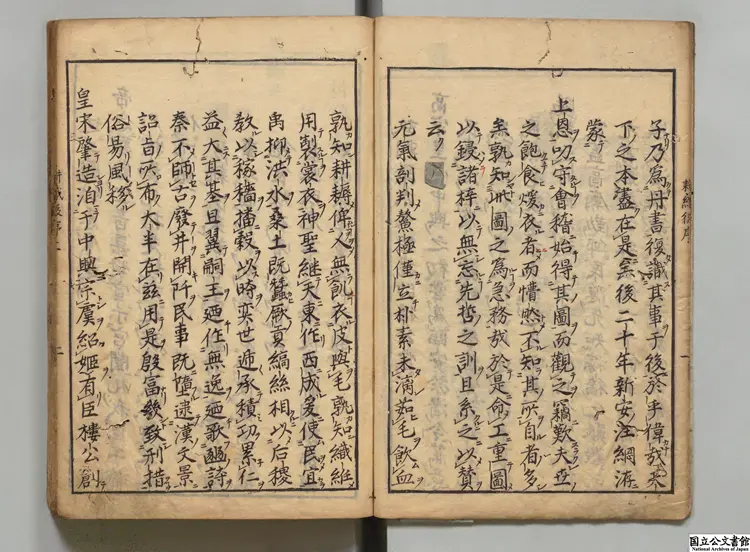 子乃爲丹書復識其事于後於乎偉哉宋
下之本盡在是矣後二十年新安汪綱洊
蒙
上恩叨守會稽始得其圖而觀之竊歎夫世
之飽食煖衣者而懵然不知其所自者多
矣孰知此圖之爲急務哉於是命工重圖
以鋟諸梓以無忘先哲之訓且系之以賛
云
元氣剖判鰲極僅立朴素未漓茹毛飲血
孰知耕耨俾人無飢衣皮與毛孰知織維
用製裳衣神聖継天東作西成爰使民宜
禹抑洪水桑土既蠶厥貢縞絲相以后稷
教以稼穡播穀以時奕世逓承積功累仁
益大其基旦翼嗣王廼作無逸廼歌豳詩
秦不師古廢井開阡民事既墮逮漢文景
詔旨所布大半在兹用是殷富幾致刑措
俗易風移
皇宋肇造洎于中興宗虞紹姫有臣樓公創
耕織
序
一
二
国立公文書館
National Archives of Japan